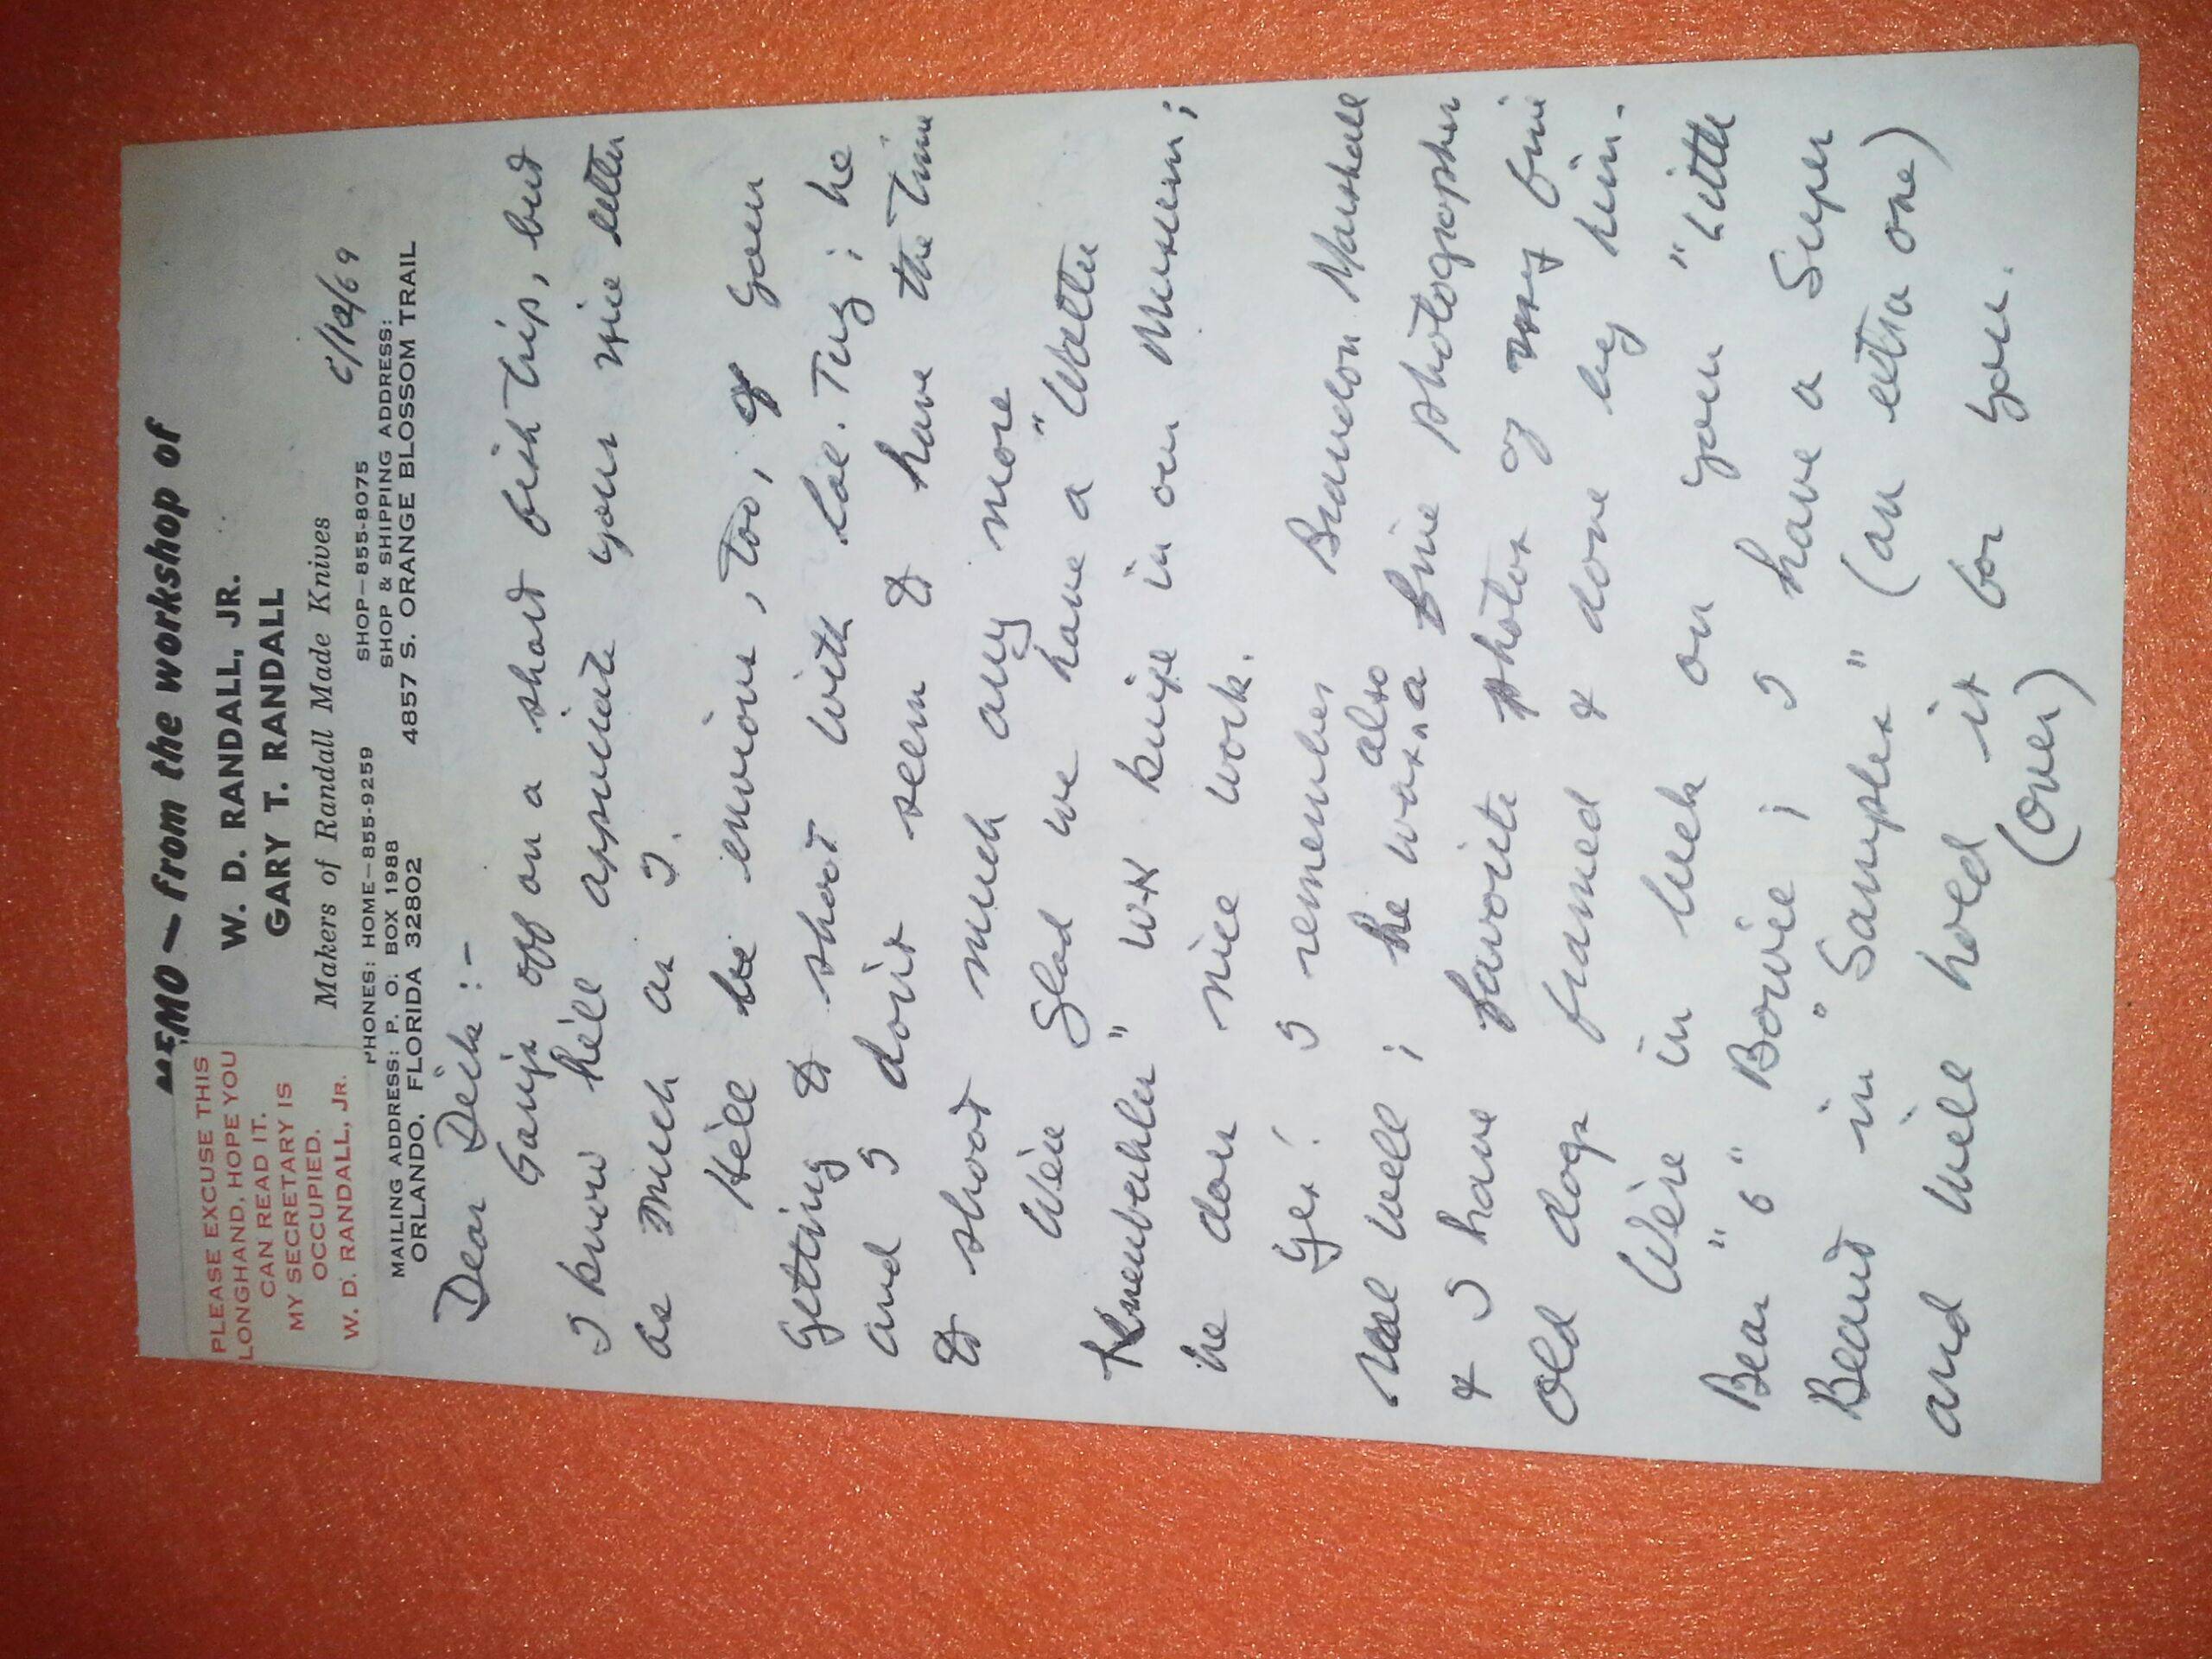 MEMO – from the workshop of
PLEASE EXCUSE THIS
LONGHAND, HOPE YOU
CAN READ IT.
MY SECRETARY IS
OCCUPIED.
W. D. RANDALL, JR.
W. D. RANDALL, JR.
GARY T. RANDALL
Makers of Randall Made Knives
/12/69
PHONES: HOME–855-9259 SHOP–855-8075
MAILING ADDRESS: P. O. BOX 1988 SHOP & SHIPPING ADDRESS:
ORLANDO, FLORIDA 32802 4857 S. ORANGE BLOSSOM TRAIL
Dear Dick :-
Gary's off on a short fish trip, but
I know he'll appreciate your nice letter
as much as I.
He'll be envious, too, of your
getting to shoot with Col. Tug; he
and I don't seem to have the time
to shoot much any more
We're glad we have a "Walter
Kneubuhler" knife in our Museum;
he does nice work.
Yes! I remember Brandon Marshall
real well; he was also a fine photographer
& I have favorite photos of my fine
old dogs framed & done by him.
We're in luck on your "Little
Bear" 6" Bowie; I have a Super
Beaut in "Samples" (an extra one)
and will hold it for you.
(over)